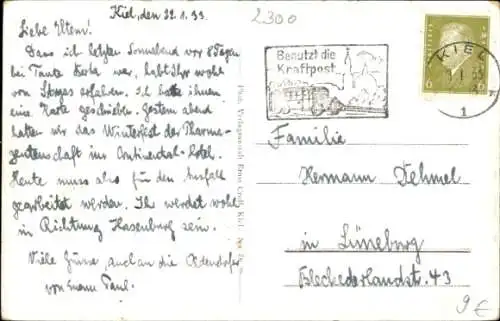 Kiel, den 22.1.33.
Liebe Eltern!
Dass ich letzten Sonnabend vor 8 Tagen
bei Tante war, habt Ihr wohl
von erfahren. Ich hatte ihnen
eine Karte geschrieben. Gestern abend
hatten wir das Winterfest der Pharma-
zentenschaft im Continental-Hotel.
Heute muss also für den Ausfall
gearbeitet werden. Ihr werdet wohl
in Richtung Hasenburg sein.
Viele Grüsse, auch an die
von Eurem Paul.
Phot. Verlagsanstalt Ernst Kiel
2300
Benutzt die
Kraftpost
KIEL
6
1
Familie
Hermann Dehmel
in Lüneburg
Bleckederlandstr. 43
9€